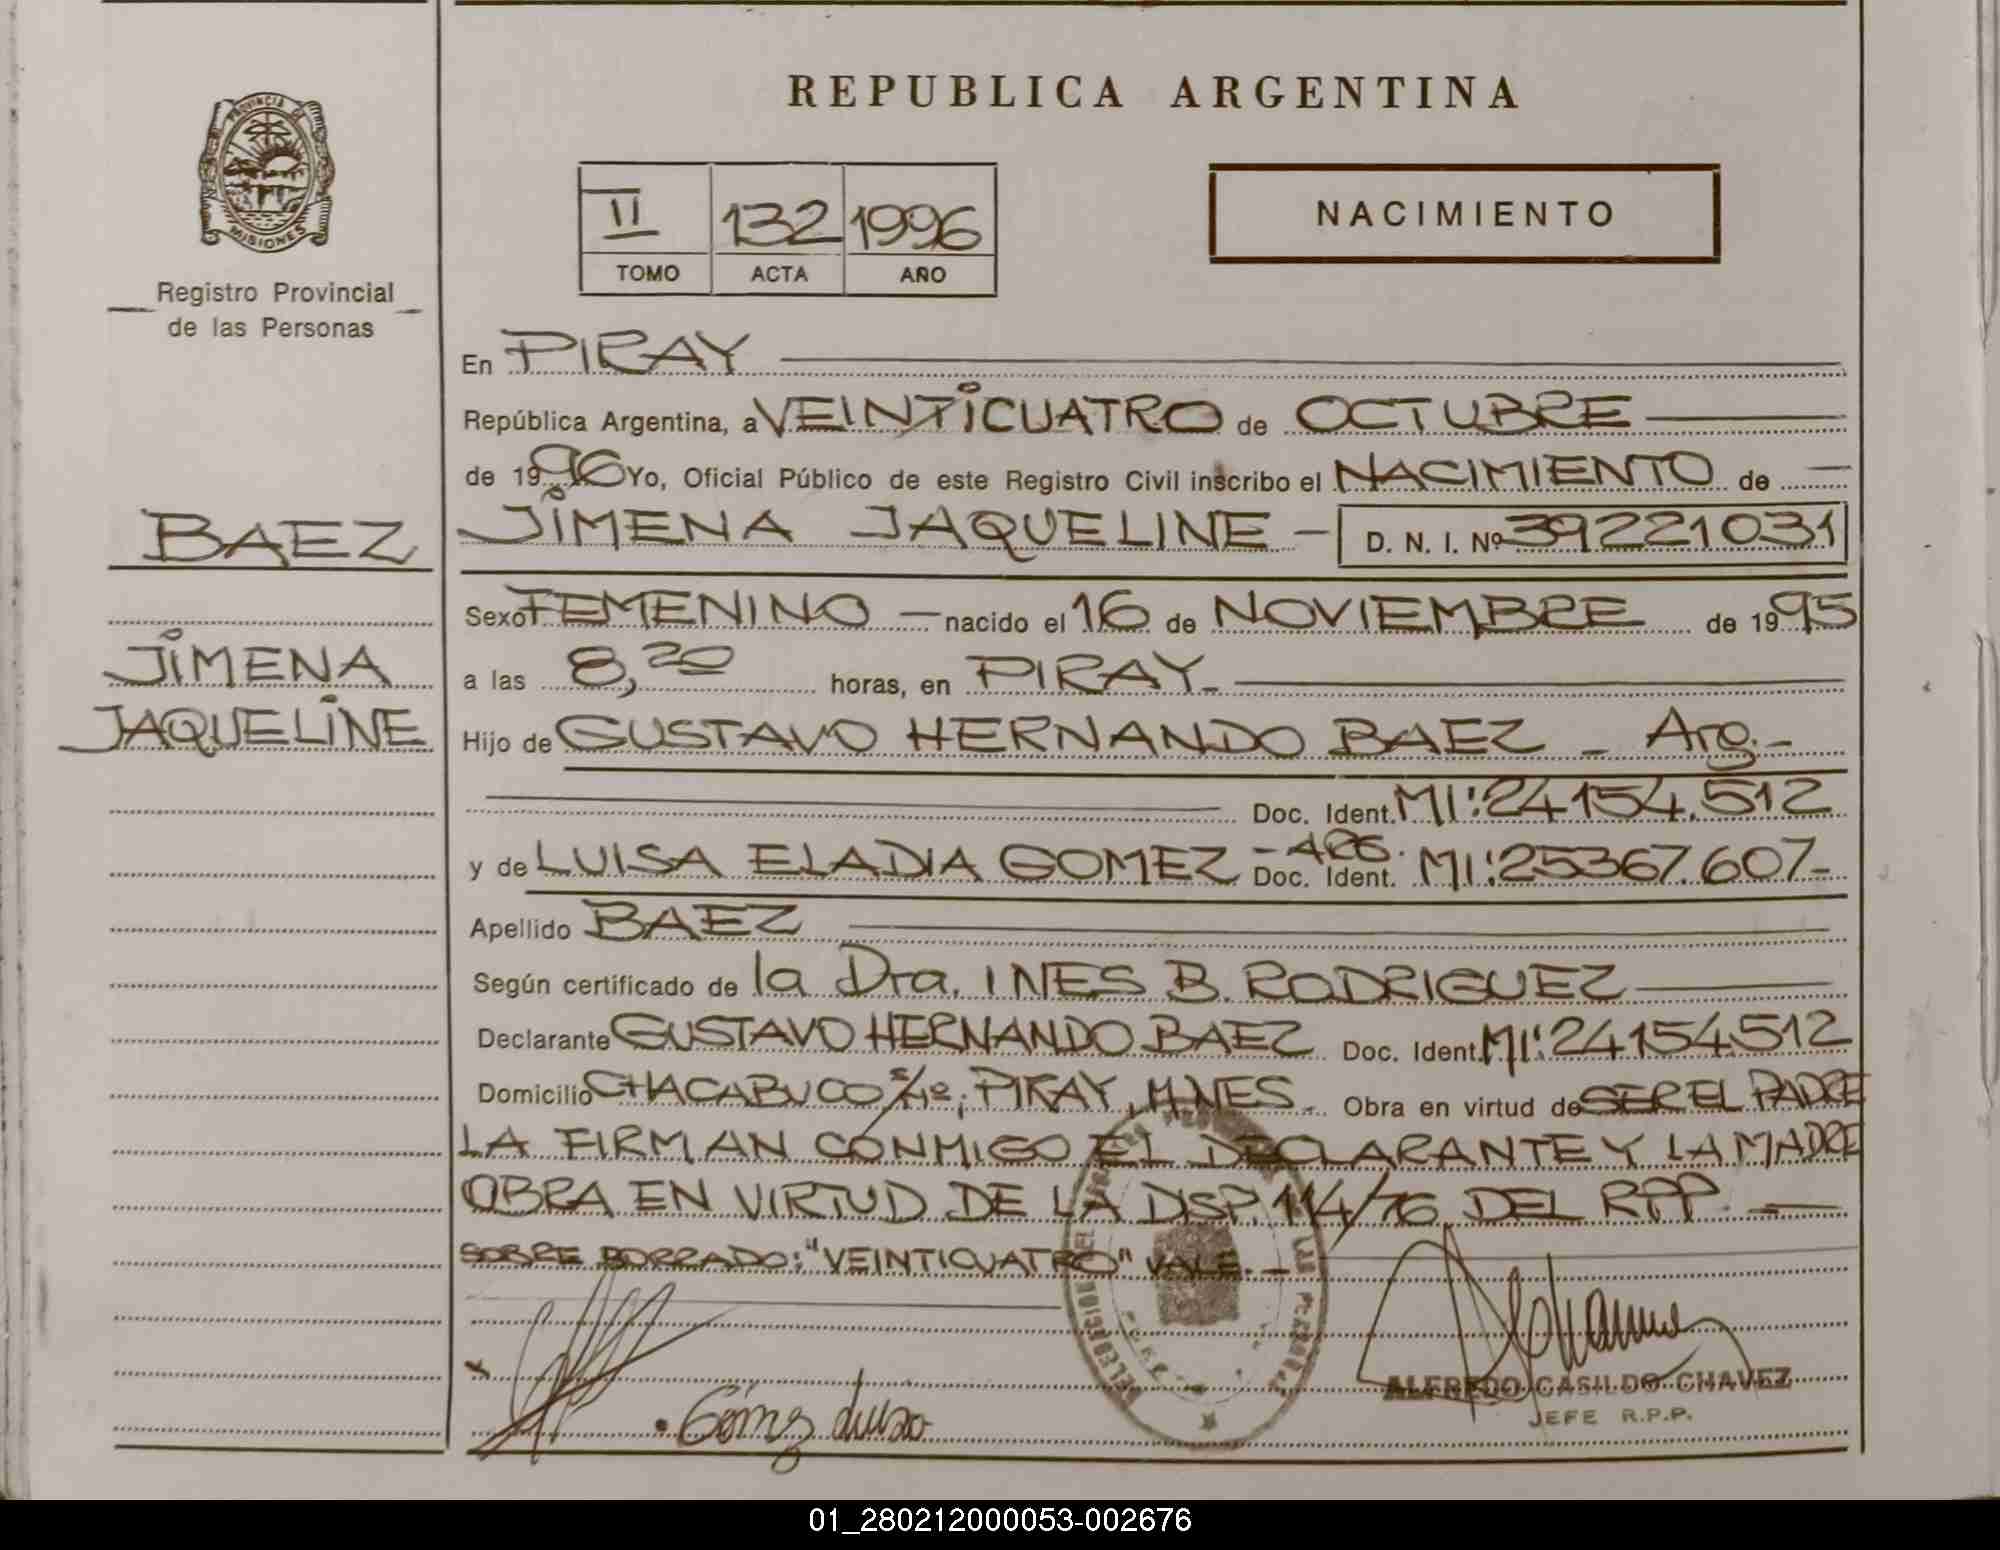 REPUBLICA ARGENTINA
PROVINCIA DE
MISIONES
Registro Provincial
de las Personas
II 132 1996
TOMO ACTA AÑO
NACIMIENTO
En PIRAY
República Argentina, a VEINTICUATRO de OCTUBRE
de 1996 Yo, Oficial Público de este Registro Civil inscribo el NACIMIENTO de
BAEZ
JIMENA JAQUELINE - D. N. I. Nº 39221031
Sexo FEMENINO - nacido el 16 de NOVIEMBRE de 1995
JIMENA
a las 8,20 horas, en PIRAY-
JAQUELINE
Hijo de GUSTAVO HERNANDO BAEZ - Arg.-
Doc. Ident. MI:24154.512
y de LUISA ELADIA GOMEZ - ARG. Doc. Ident. MI:25367.607-
Apellido BAEZ
Según certificado de la Dra. INES B. RODRIGUEZ
Declarante GUSTAVO HERNANDO BAEZ Doc. Ident. MI:24154512
Domicilio CHACABUCO s/nº; PIRAY, MNES. Obra en virtud de SER EL PADRE
LA FIRMAN CONMIGO EL DECLARANTE Y LA MADRE
OBRA EN VIRTUD DE LA DISP. 114/76 DEL RPP. -
SOBRE BORRADO: "VEINTICUATRO" VALE. -
Gómez Luisa
ALFREDO CASILDO CHAVEZ
JEFE R.P.P.
01_280212000053-002676